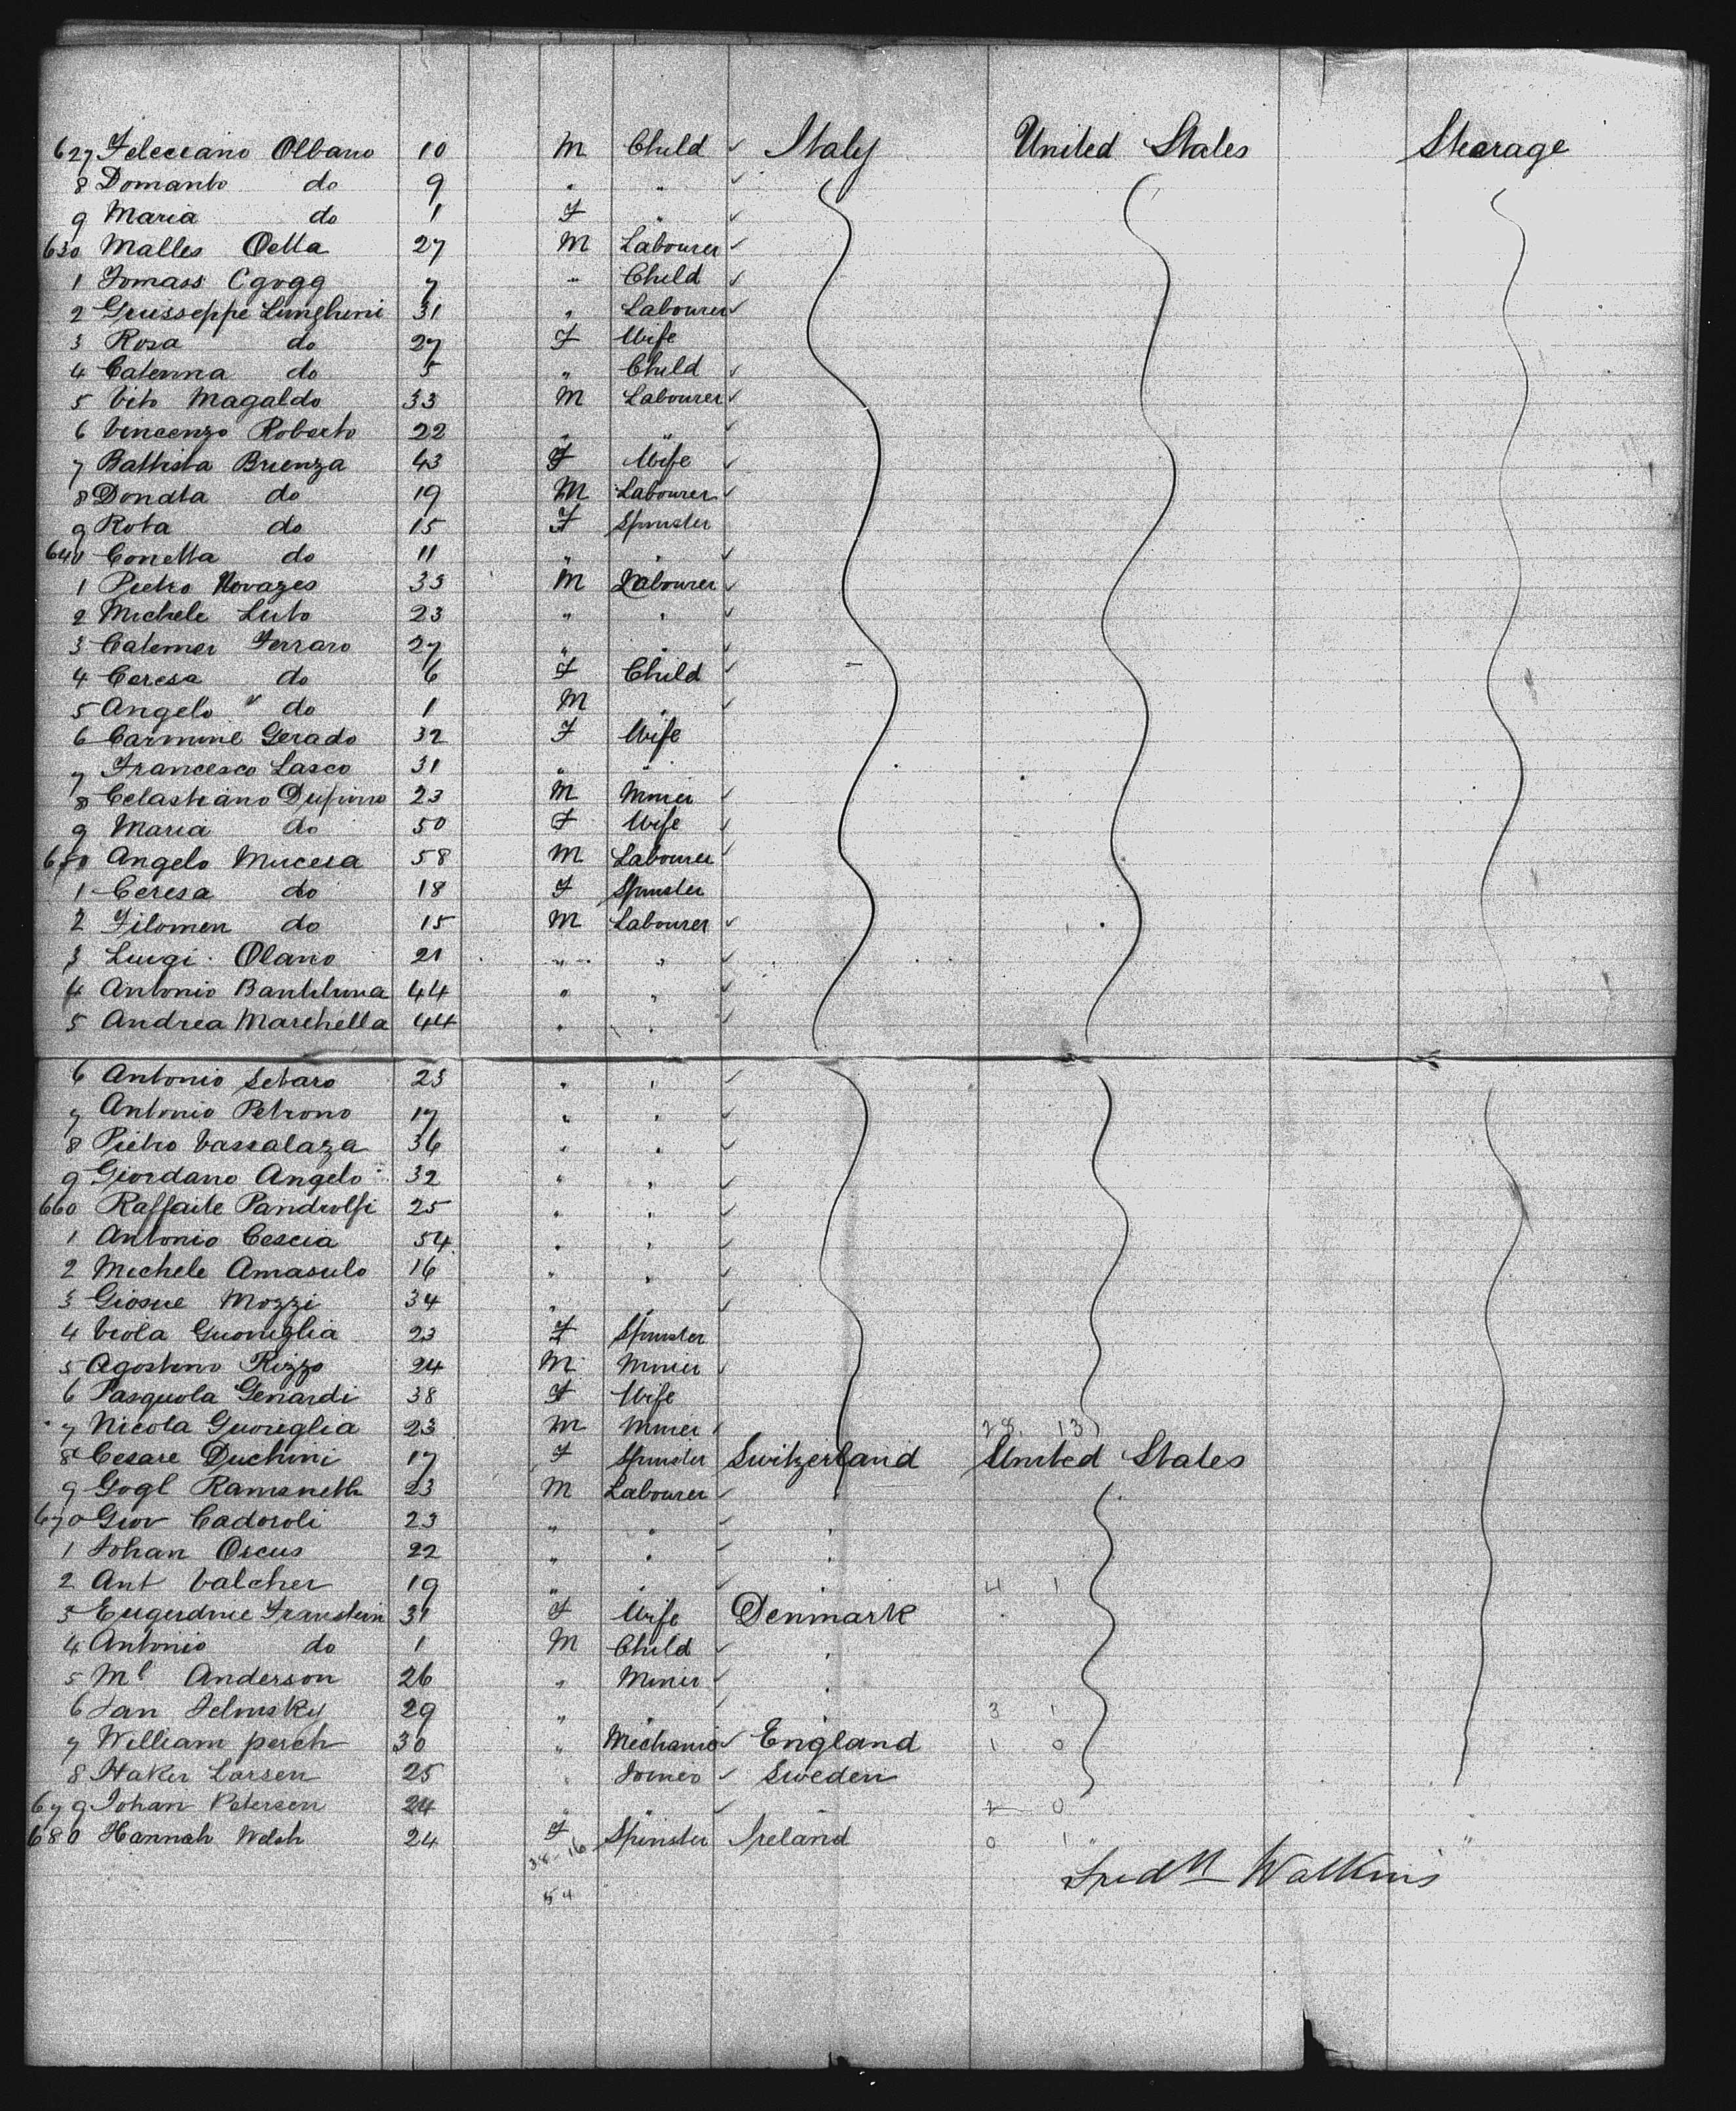 627 Feleciano Olbano 10 M Child ✓ Italy United States Steerage
8 Domanto do 9 " " ✓
9 Maria do 1 F " ✓
630 Malles Oetta 27 M Labourer ✓
1 Tomass Cgogg 7 " Child ✓
2 Guisseppe Lungheni 31 " Labourer ✓
3 Rosa do 27 F Wife
4 Caterina do 5 " Child ✓
5 Vito Magaldo 33 M Labourer ✓
6 Vincenzo Roberto 22 " " ✓
7 Battista Brienza 43 F Wife ✓
8 Donata do 19 M Labourer ✓
9 Rota do 15 F Spinster
640 Conetta do 11 " " ✓
1 Pietro Novazes 35 M Labourer ✓
2 Michele Luto 23 " " ✓
3 Catemer Ferraro 27 " " ✓
4 Ceresa do 6 F Child ✓
5 Angelo " do 1 M " ✓
6 Carmine Gerado 32 F Wife
7 Francesco Lasco 31 " "
8 Celastiano 23 M Miner ✓
9 Maria do 50 F Wife ✓
650 Angelo Mucesa 58 M Labourer ✓
1 Ceresa do 18 F Spinster
2 Filomen do 15 M Labourer ✓
3 Luigi Olano 21 " " ✓
4 Antonio 44 " " ✓
5 Andrea Marchella 44 " " ✓
6 Antonio Setaro 23 " " ✓
7 Antonio Petrono 17 " " ✓
8 Pietro Vassalaza 36 " " ✓
9 Giordano Angelo 32 " " ✓
660 Raffaile Pandrolfi 25 " " ✓
1 Antonio Cescia 54 " " ✓
2 Michele Amasulo 16 " " ✓
3 Giosue Mozzi 34 " " ✓
4 Viola Guoniglia 23 F Spinster
5 Agostino Rizzo 24 M Miner ✓
6 Pasquola Genardi 38 F Wife
7 Nicola Guoniglia 23 M Miner 28 13
8 Cesare Duchini 17 F Spinster Switzerland United States
9 Gogl Ramsneth 23 M Labourer ✓ "
670 Giov Cadoroli 23 " " ✓ "
1 Johan Orcus 22 " " ✓ "
2 Ant Valcher 19 " " ✓ " 4 1
3 Franstein 31 F Wife Denmark
4 Antonio do 1 M Child ✓ "
5 Ml Anderson 26 " Miner ✓ "
6 Jan Jelmsky 29 " " ✓ " 3 1
7 William persch 30 " Mechanic ✓ England 1 0
8 Haker Larsen 25 " Joiner ✓ Sweden
679 Johan Petersen 24 " " ✓ " 2 0
680 Hannah Welsh 24 F Spinster Ireland 0 1 " "
38-16
Fredk Watkins
54